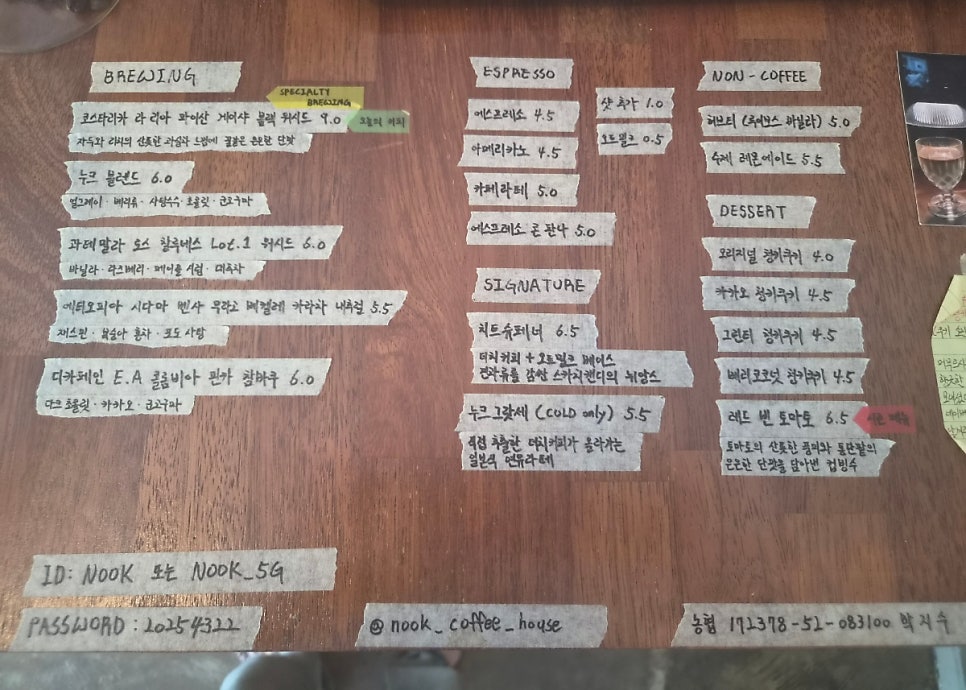 BREWING
SPECIALTY
BREWING
코스타리카 라 리아 와이산 게이샤 블랙 워시드 9.0
오늘의 커피
자두와 리치의 산뜻한 과실과 느껴 꿀같은 은은한 단맛
누크 블렌드 6.0
얼그레이 · 베리류 · 사탕수수 · 초콜릿 · 군고구마
과테말라 로스 할루네스 Lot.1 워시드 6.0
바닐라 · 라즈베리 · 메이플 시럽 ·
에티오피아 시다마 벤사 우라고 베켈레 카라차 내추럴 5.5
재스민 · 복숭아 홍차 · 포도 사탕
디카페인 E.A 콜롬비아 핀카 참바쿠 6.0
다크 초콜릿 · 카카오 · 군고구마
ESPRESSO
에스프레소 4.5
아메리카노 4.5
카페라떼 5.0
에스프레소 콘 판나 5.0
샷 추가 1.0
오트밀크 0.5
SIGNATURE
치트슈페너 6.5
더치커피 + 오트밀크 베이스
견과류를 감싼 스카치캔디의 뉘앙스
누크 그랏세 (COLD only) 5.5
직접 추출한 더치커피가 올라가는
일본식 연유라떼
NON-COFFEE
허브티 (루이보스 바닐라) 5.0
수제 레몬에이드 5.5
DESSERT
오리지널 청키쿠키 4.0
카카오 청키쿠키 4.5
그린티 청키쿠키 4.5
베리코코넛 청키쿠키 4.5
레드 빈 토마토 6.5
시즌 메뉴
토마토의 산뜻한 풍미와 통단팥의
은은한 단맛을 담아낸 컵빙수
ID: NOOK 또는 NOOK_5G
PASSWORD : 20254322
@nook_coffee_house
농협 172378-52-083100 박지수